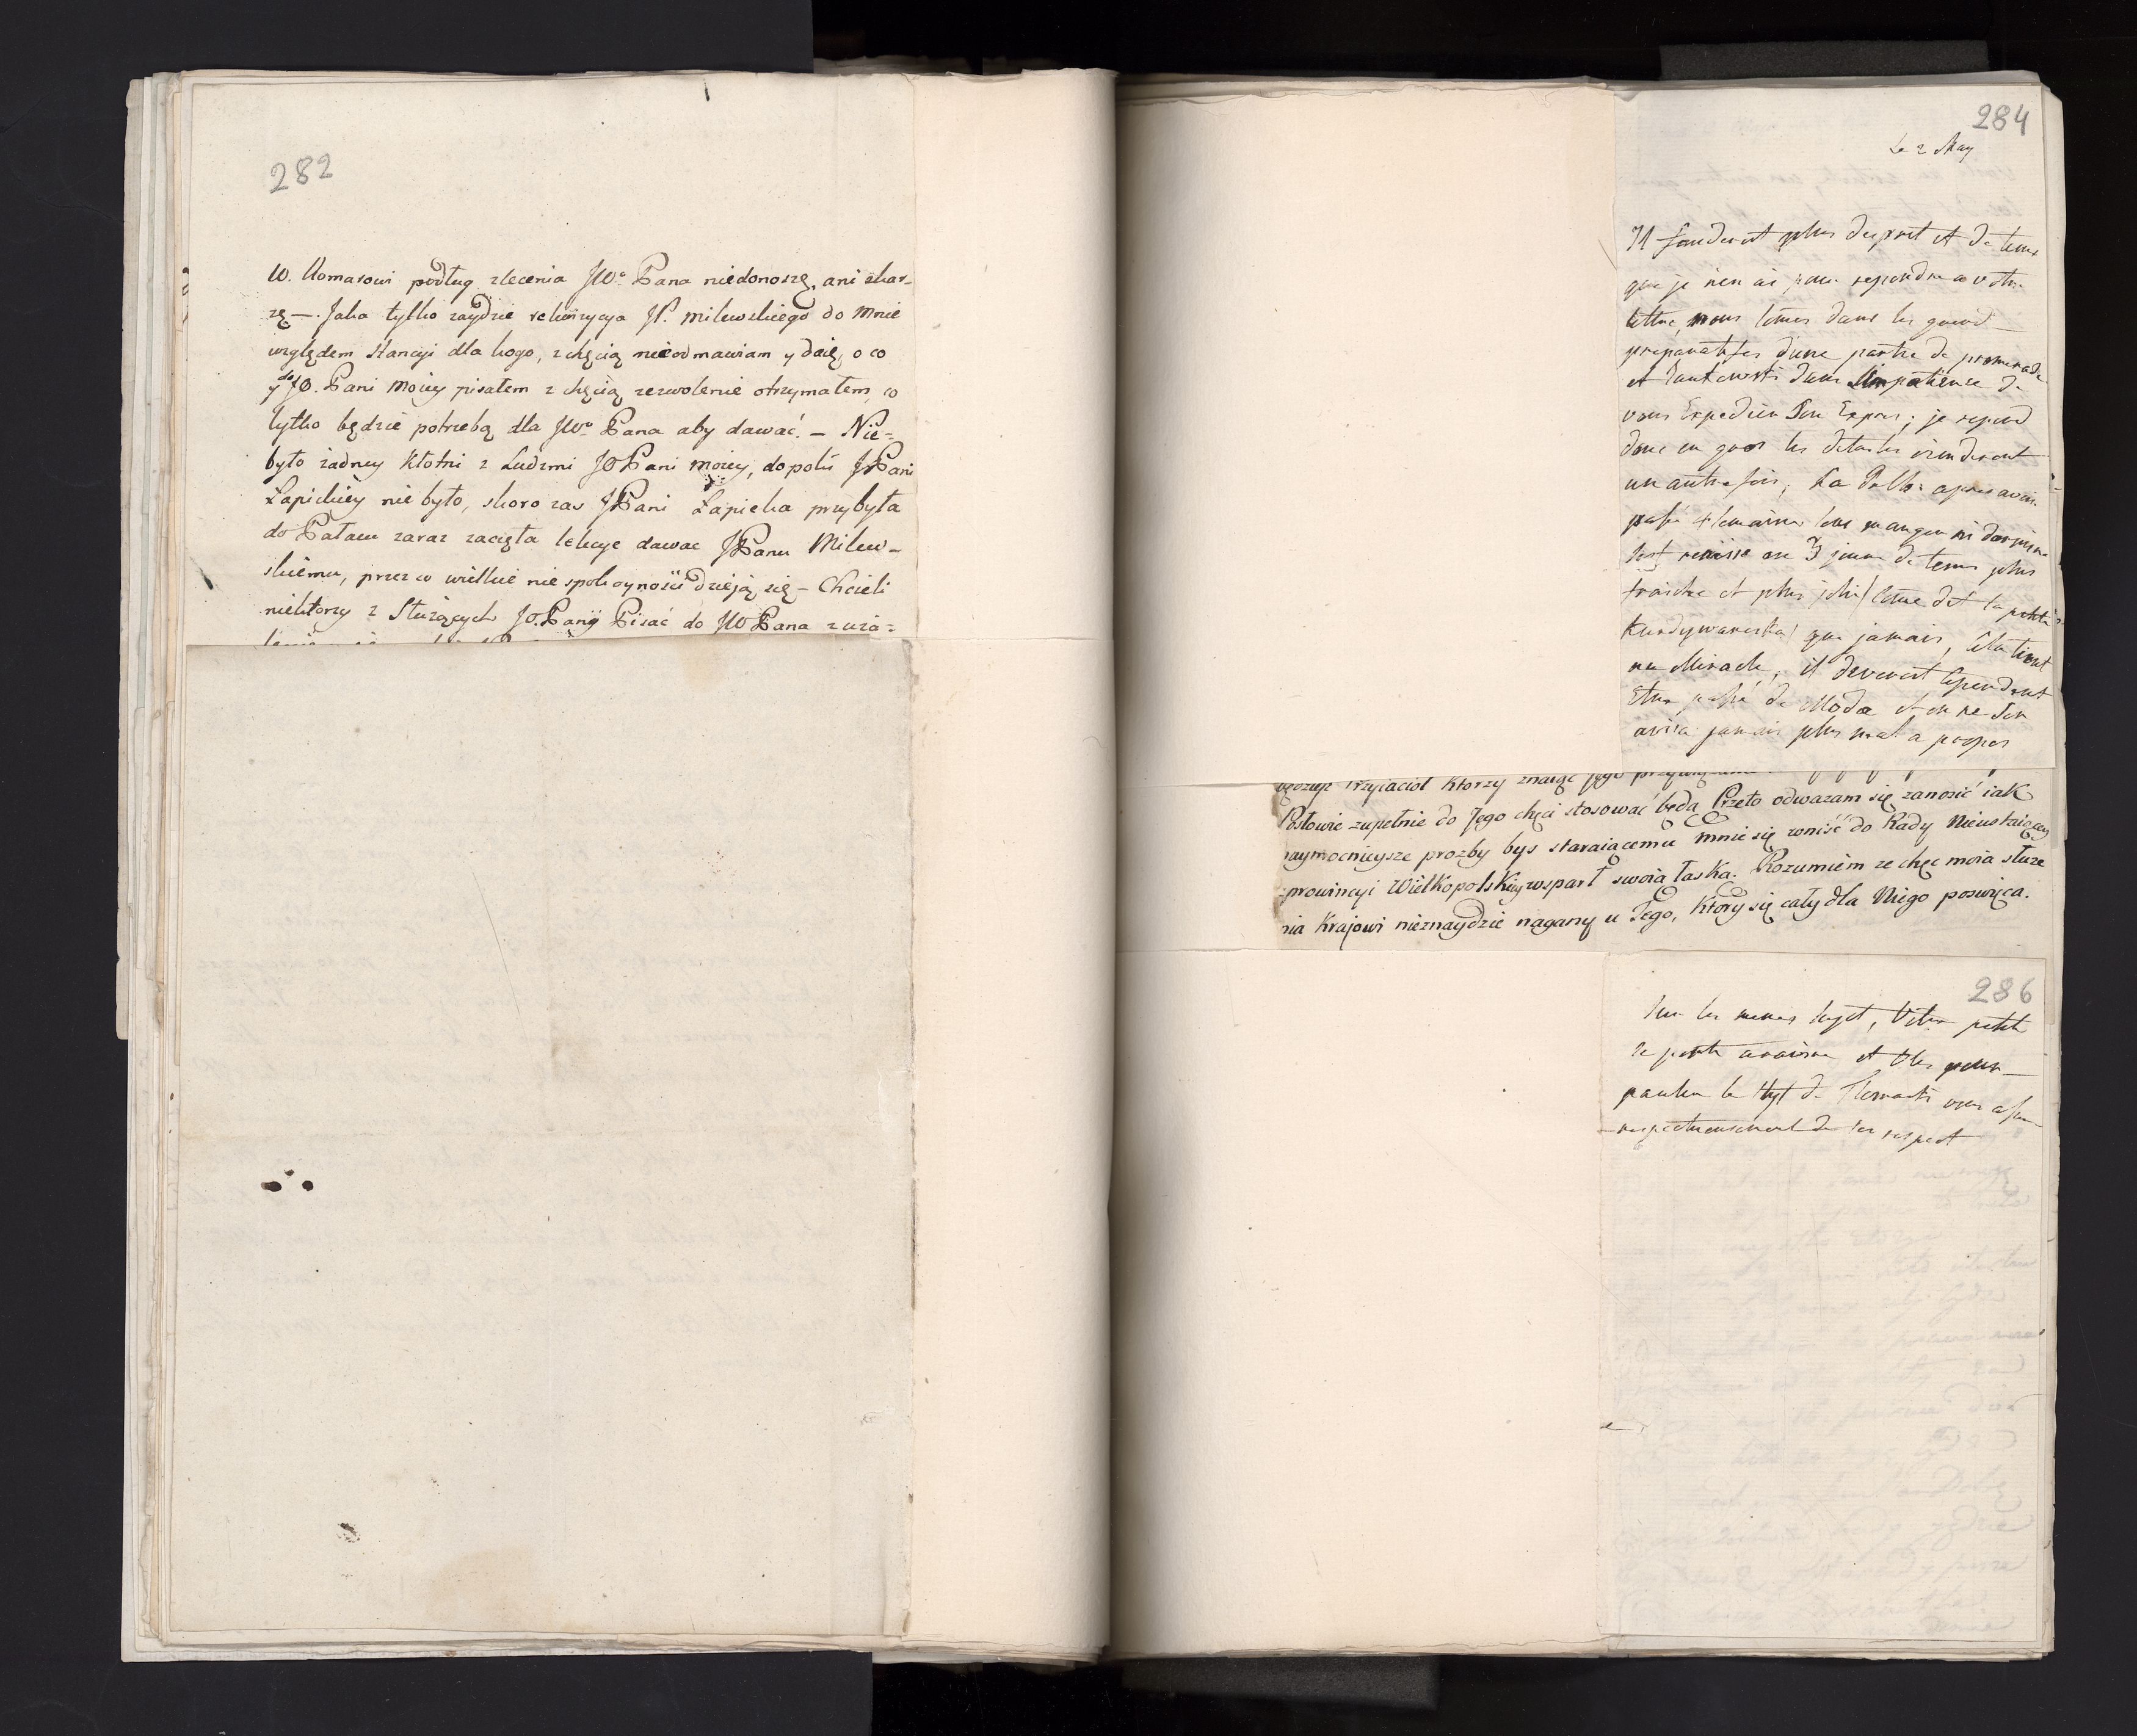 282
W. Komarowi podług zlecenia JWo Pana niedonoszę, ani skar-
zę —. Jaka tylko zaydzie rekwizycya JP. Milewskiego do mnie
względem Stancyi dla kogo, z chęcią nieodmawiam y daię, o co
y do JO. Pani Moiey pisałem z chęcią zezwolenie otrzymałem, co
tylko będzie potrzebą dla JWo Pana aby dawać. — Nie=
było żadney Kłotni z Ludzmi JO Pani moiey, dopoki JPani
Łapickiey nie było, skoro zas JPani Łapicka przybyła
do Pałacu zaraz zaczęła lekcye dawac JPanu Milew-
skiemu, przez co wielkie niespokoynosci dzieją się — Chcieli
niektorzy z Służących JO. Pani Pisać do JW Pana z uża=
284
Le 2 May
Il fauderoit plus desprit et de tems
que je nen ai pour repondre a votre
lettre, nous somes dans les grand
preparatifes dune partie de promenade
et dans l'impatience de
vous Expedier Son Expres; je repond
donc en gros les detailes viendront
un autre fois, La apres avoir
passé 4 semaines sans manger ni dormir
sest en 3 jours de tems plus
fraiche et plus jolie (come dit la petite
Kurdywanoska) que jamais, cela tient
au Miracle, il devroit cependant
Etre passé de Mode et on ne sen
avisa jamais plus mal a propos
Przyiacioł ktorzy znaiąc Jego
Posłowie zupełnie do Jego chęci stosować będą. Przeto odwazam się zanosić iak
naymocnieysze prozby bys staraiącemu mnie się wniść do Rady Nieustaiącey
z prowincyi Wielkopolskiey wsparł swoią łaską. Rozumiem ze chęc moia słuze
nia Krajowi nieznaydzie nagany u Tego, ktory się cały dla Niego poswięca.
286
Sur les memes sujet, Votre petit
se porte a et
le de vous
respectueusement de ses respect